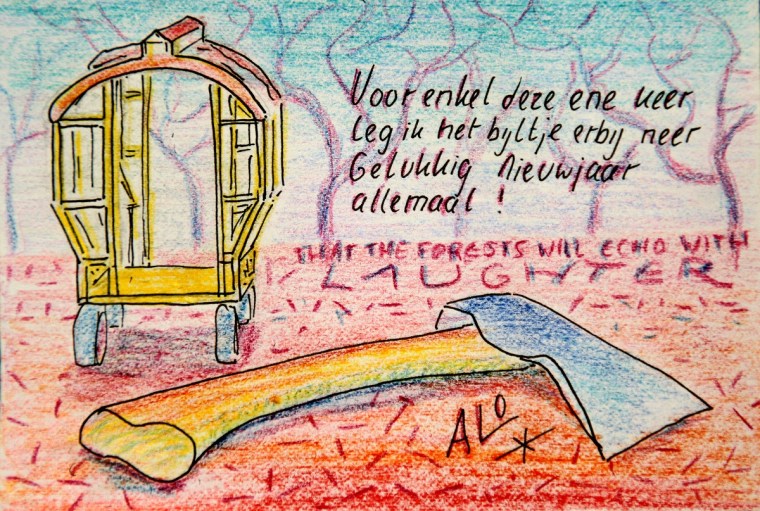 Voor enkel deze ene keer
Leg ik het byltje erby neer
Gelukkig Nieuwjaar
allemaal !
THAT THE FORESTS WILL ECHO WITH
LAUGHTER
ALO